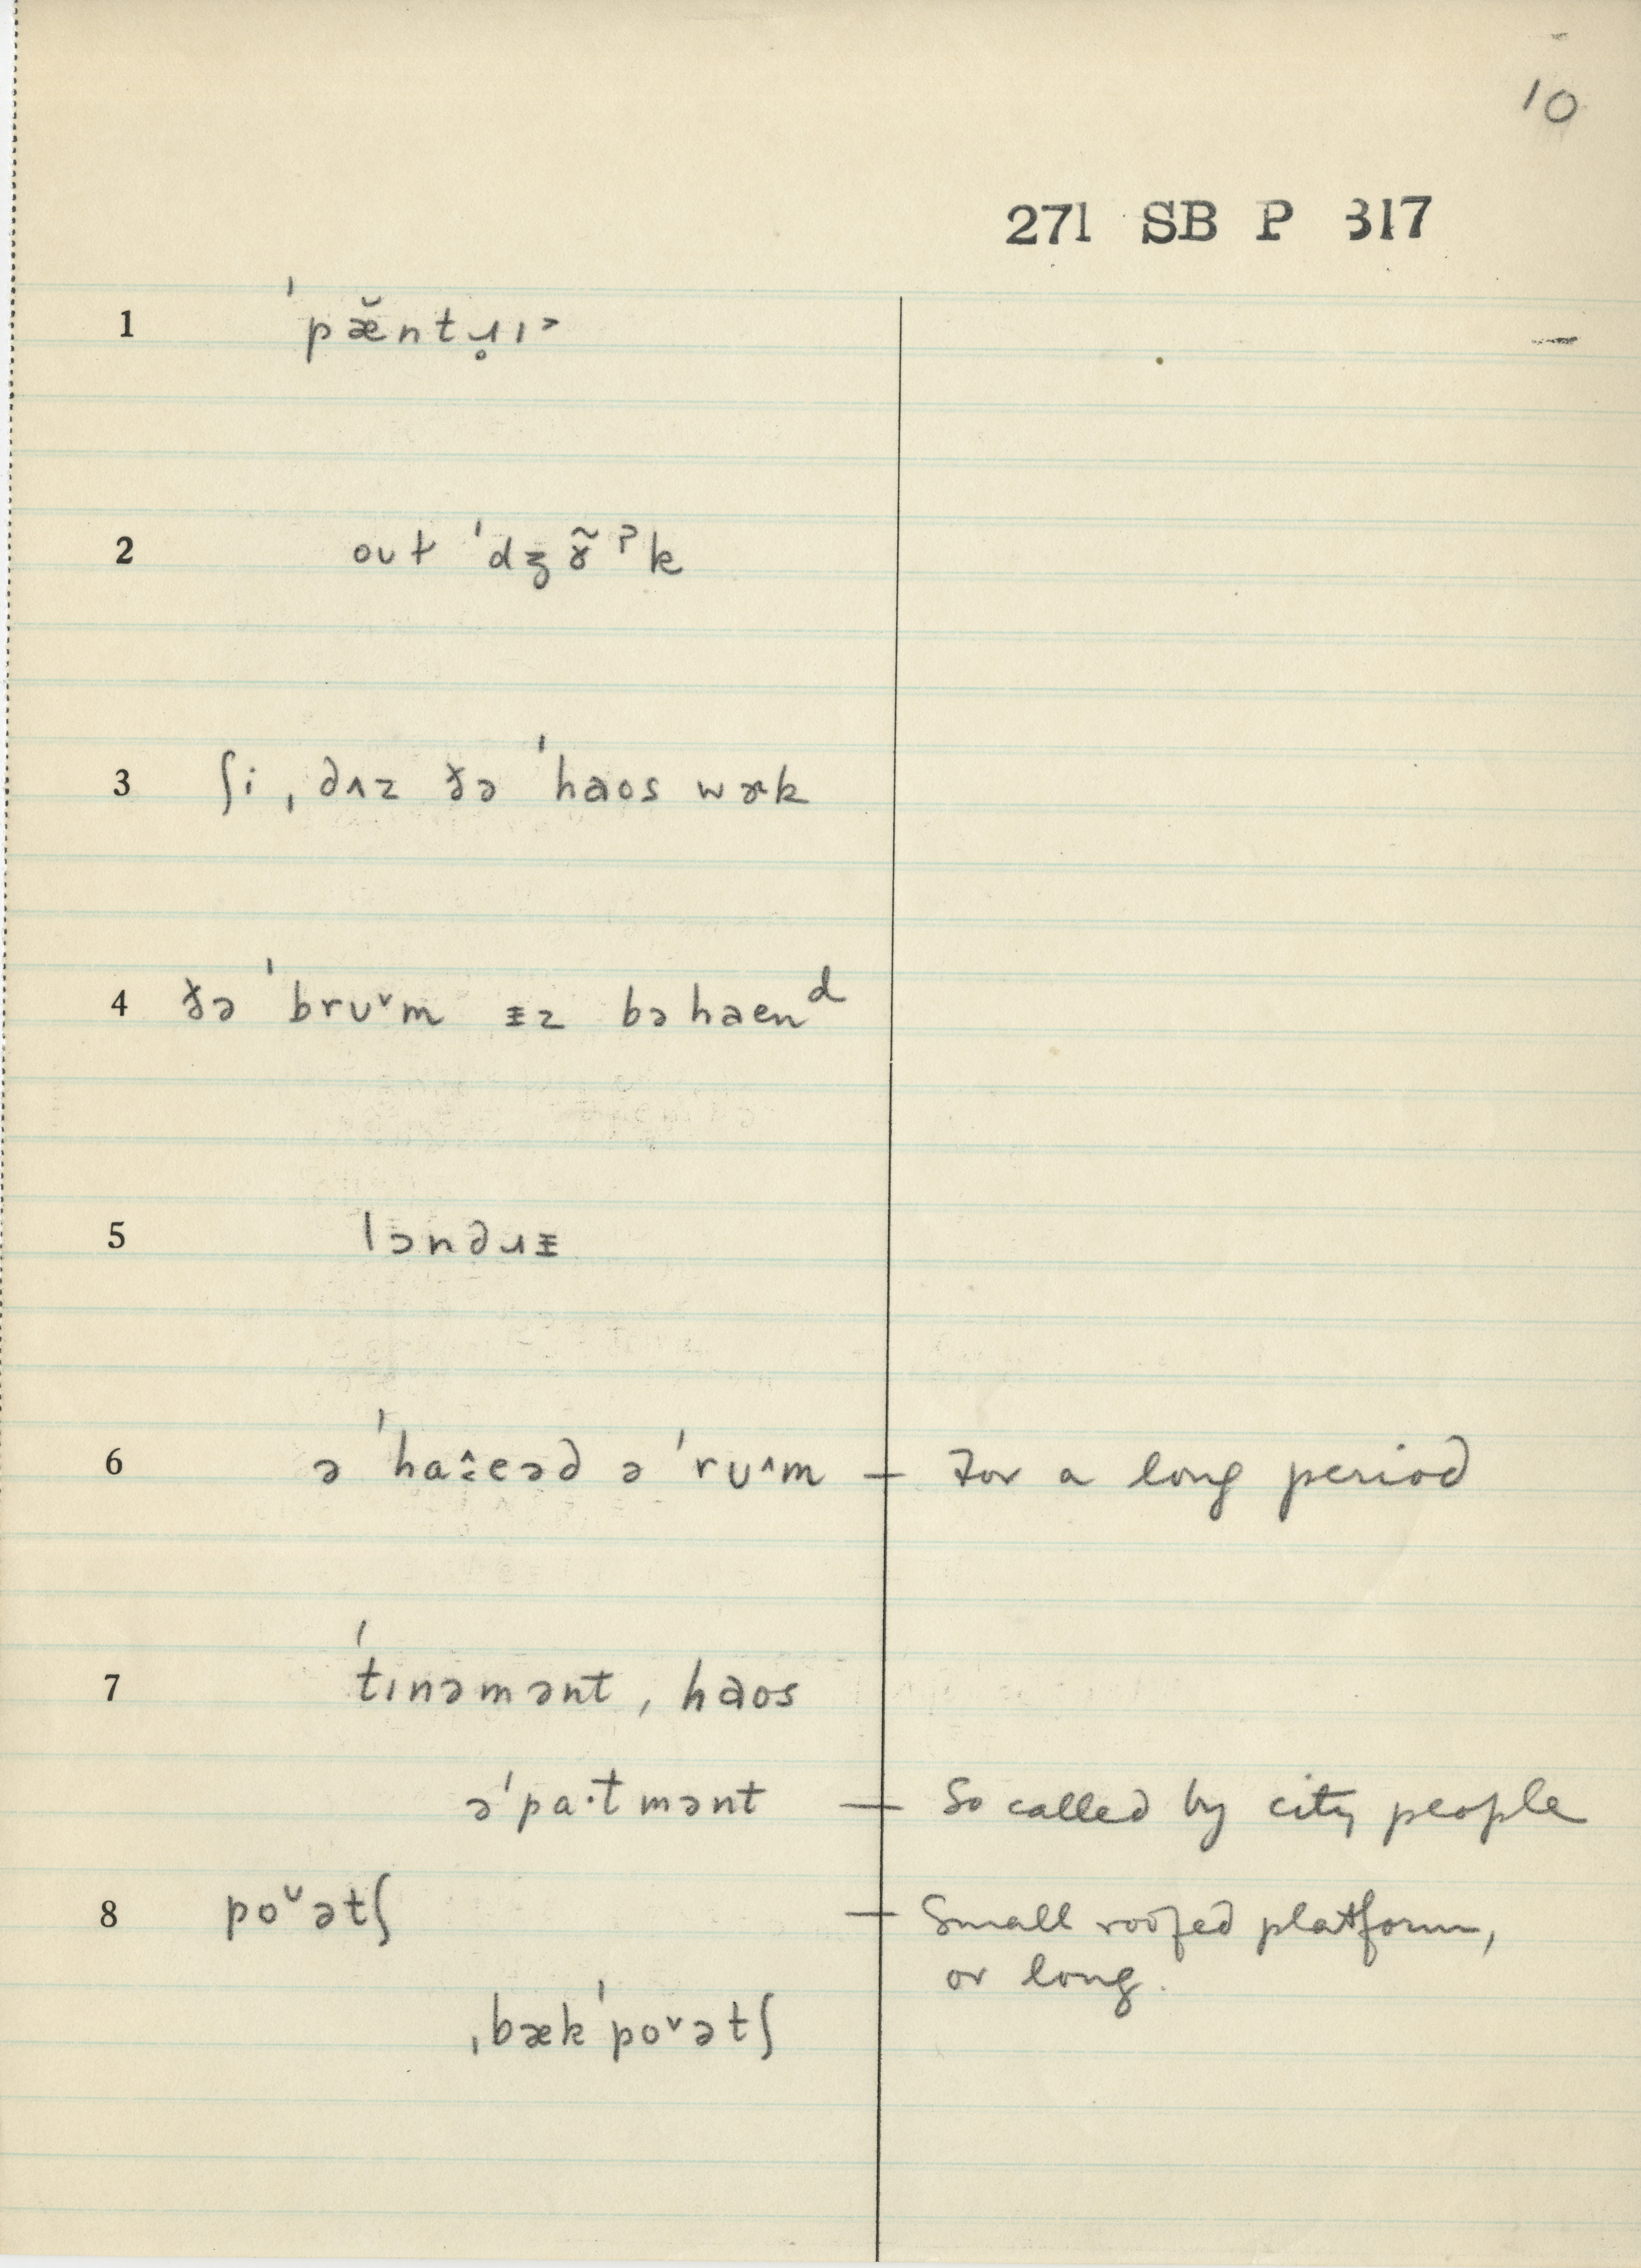 10
271 SB P 317
1 ˈpæ̆ntɹ̥ɪ˃
2 oʊt ˈdʒɤ̃ˀk
3 ʃi ˌdʌz ðə ˈhaos wɚk
4 ðə ˈbrʊˇm ᵻz bəhaenᵈ
5 lɔndɹᵻ
6 ə ˈhaːeəd ə ˈrʊ^m — For a long period
7 ˈtɪnəmənt ˌhaos
əˈpa·tmənt — So called by city people
8 poˇətʃ — Small roofed platform,
or long.
ˌbækˈpoˇətʃ